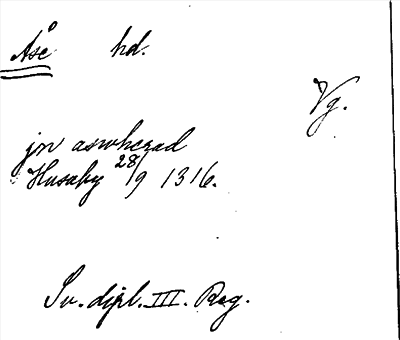 Åse hd.
Vg.
jn aswherad
Husaby 28/9 1316.
Sv. dipl. III. Reg.